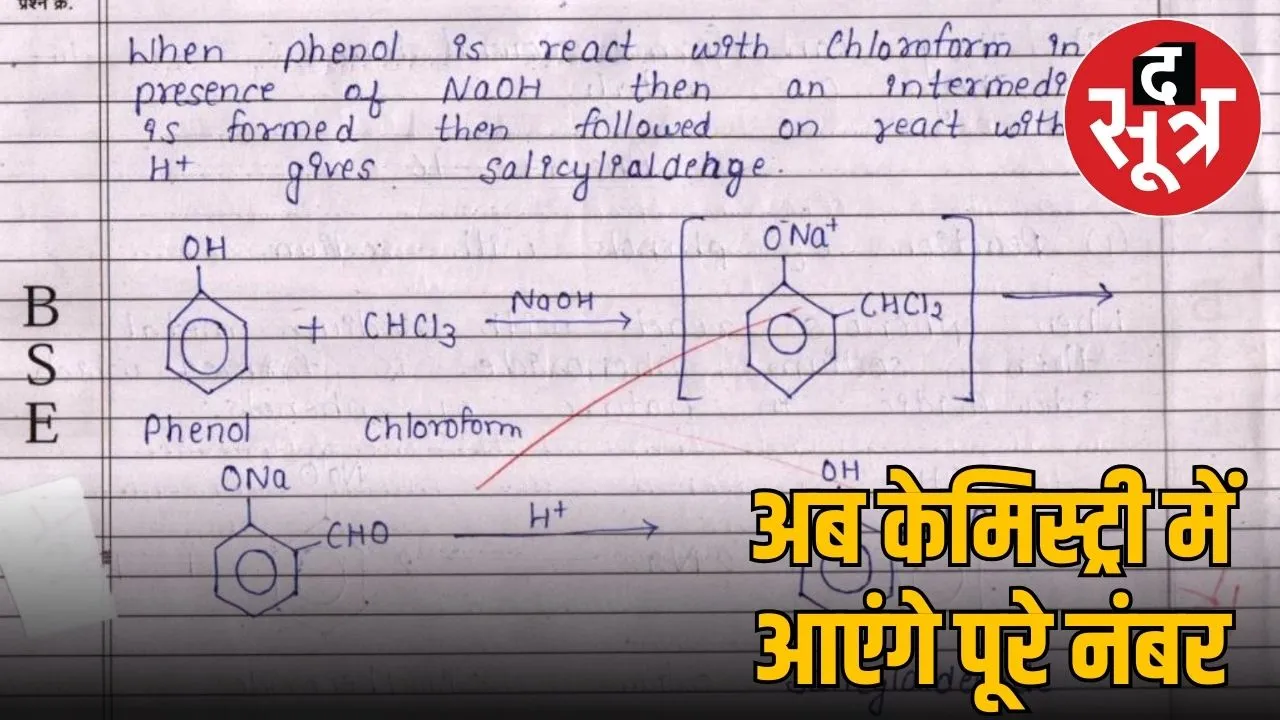 प्रश्न क्र.
When phenol is react with Chloroform in
presence of NaOH then an intermedi
is formed then followed on react with
H+ gives salicylialdehge.
द
सूत्र
OH
O-Na+
+ CHCl3
NaOH
CHCl2
B
S
E
Phenol Chloroform
ONa
CHO
H+
OH
अब केमिस्ट्री में
आएंगे पूरे नंबर